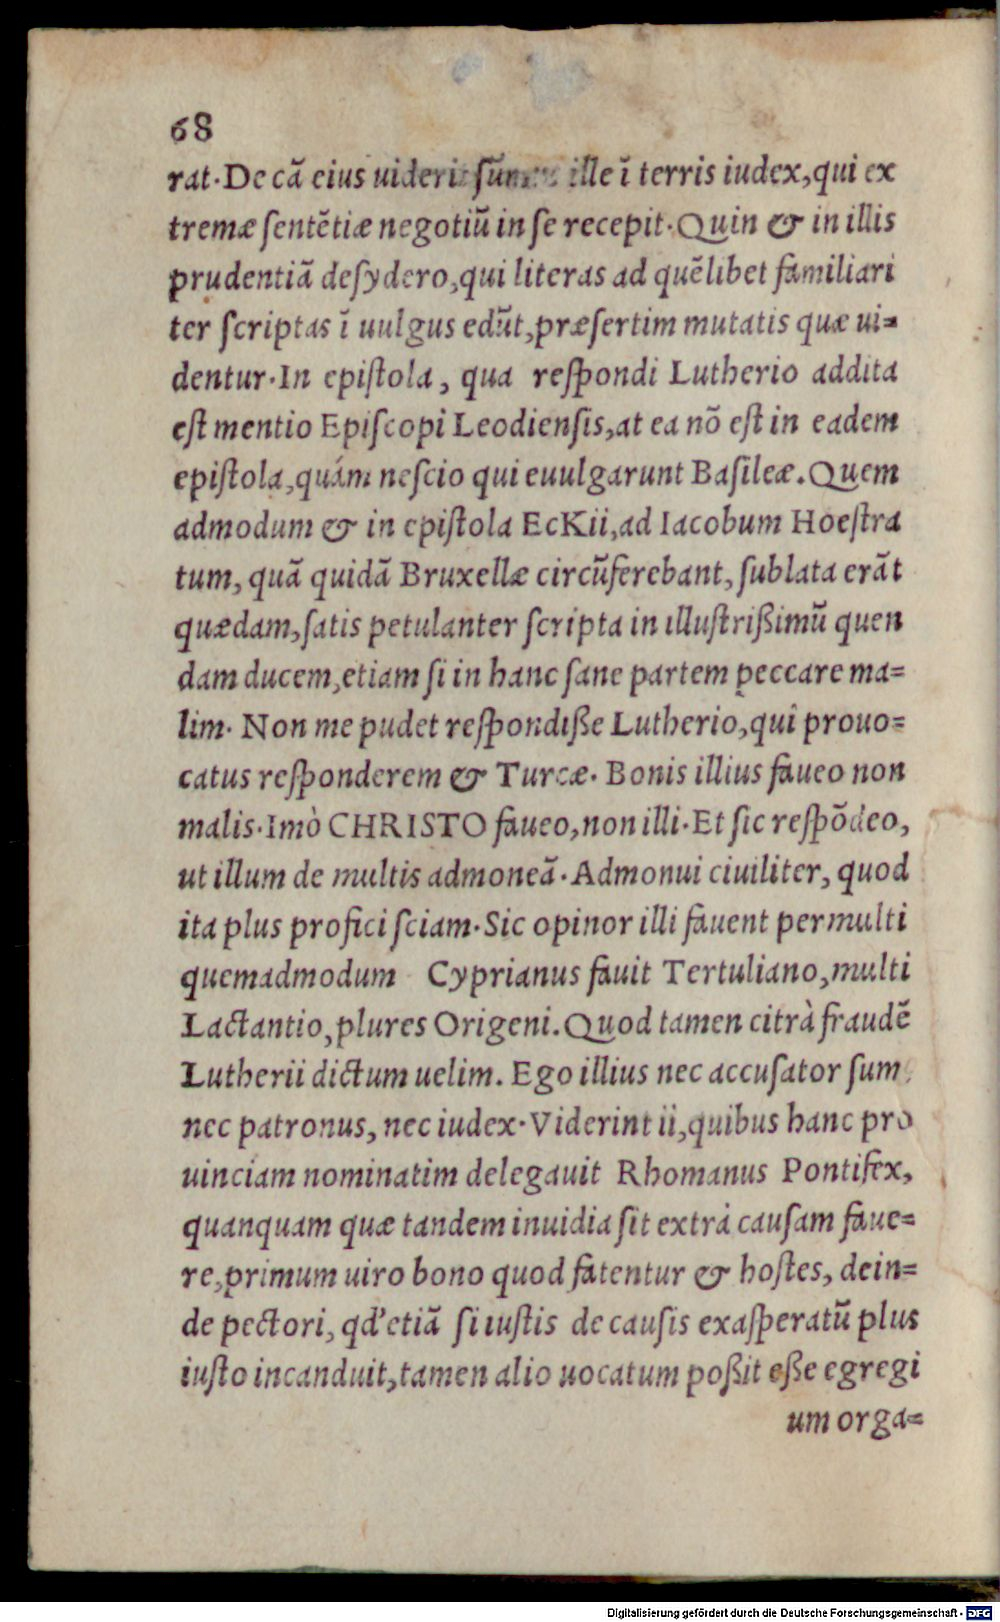 68
rat. De cā eius uiderit sūmus ille ī terris iudex, qui ex
tremæ sentētiæ negotiū in se recepit. Quin & in illis
prudentiā desydero, qui literas ad quēlibet familiari
ter scriptas ī uulgus edūt, præsertim mutatis quæ ui=
dentur. In epistola, qua respondi Lutherio addita
est mentio Episcopi Leodiensis, at ea nō est in eadem
epistola, quám nescio qui euulgarunt Basileæ. Quem
admodum & in epistola EcKii, ad Iacobum Hoestra
tum, quā quidā Bruxellæ circūferebant, sublata erāt
quædam, satis petulanter scripta in illustrißimū quen
dam ducem, etiam si in hanc sane partem peccare ma=
lim. Non me pudet respondiße Lutherio, qui prouo=
catus responderem & Turcæ. Bonis illius faueo non
malis. Imò CHRISTO faueo, non illi. Et sic respōdeo,
ut illum de multis admoneā. Admonui ciuiliter, quod
ita plus profici sciam. Sic opinor illi fauent permulti
quemadmodum Cyprianus fauit Tertuliano, multi
Lactantio, plures Origeni. Quod tamen citrà fraudē
Lutherii dictum uelim. Ego illius nec accusator sum,
nec patronus, nec iudex. Viderint ii, quibus hanc pro
uinciam nominatim delegauit Rhomanus Pontifex,
quanquam quæ tandem inuidia sit extrà causam faue=
re, primum uiro bono quod fatentur & hostes, dein=
de pectori, qd' etiā si iustis de causis exasperatū plus
iusto incanduit, tamen alio uocatum poßit eße egregi
um orga=
Digitalisierung gefördert durch die Deutsche Forschungsgemeinschaft - DFG